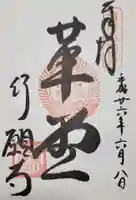 平成廿六年六月八日
奉拝
革堂
行願寺